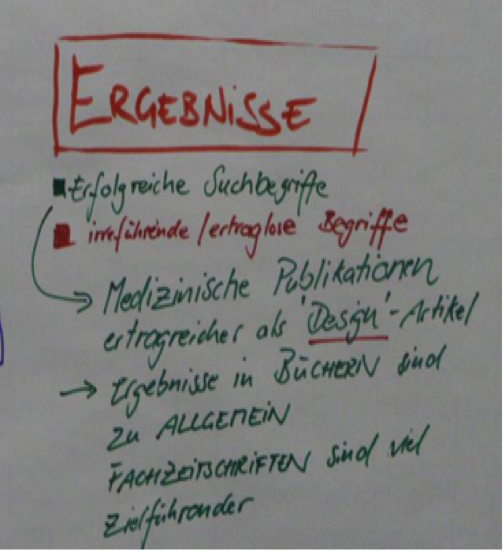 ERGEBNISSE
Erfolgreiche Suchbegriffe
irreführende / ertraglose Begriffe
→ Medizinische Publikationen
ertragreicher als 'Design'-Artikel
→ Ergebnisse in BÜCHERN sind
zu ALLGEMEIN
FACHZEITSCHRIFTEN sind viel
zielführender